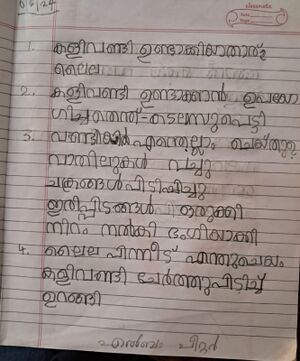 classmate
Date
Page
6/6/24
1. കളിവണ്ടി ഉണ്ടാക്കിയതാര്?
ലൈല
2. കളിവണ്ടി ഉണ്ടാക്കാൻ ഉപയോ
ഗിച്ചതെന്ത്-കടലാസുപെട്ടി
3. വണ്ടിയിൽ എന്തെല്ലാം ചെയ്തു
വാതിലുകൾ വച്ചു
ചക്രങ്ങൾപിടിപ്പിച്ചു
ഇരിപ്പിടങ്ങൾ ഒരുക്കി
നിറം നൽകി ഭംഗിയാക്കി
4. ലൈല പിന്നീട് എന്തുചെയ്തു
കളിവണ്ടി ചേർത്തുപിടിച്ച്
ഉറങ്ങി